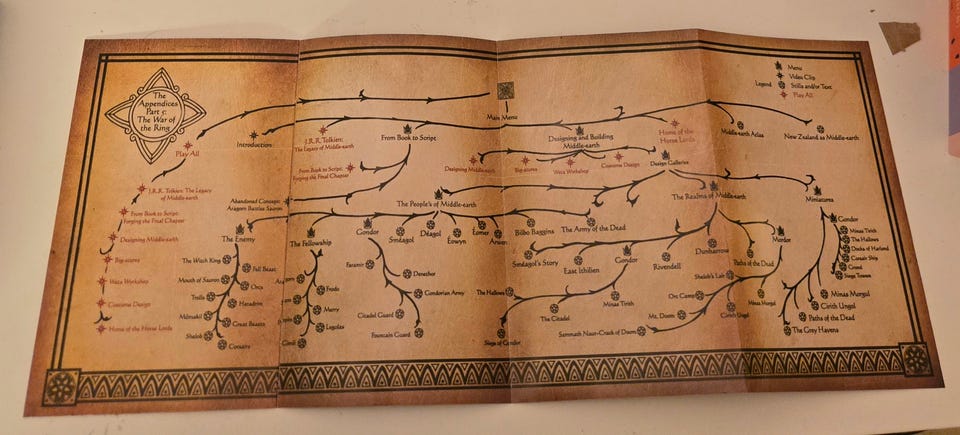 The
Appendices
Part 5:
The War of
the Ring
Menu
Video Clip
Legend
Stills and/or Text
Play All
Main Menu
Play All
Introduction
J.R.R. Tolkien:
The Legacy of Middle-earth
From Book to Script
Designing and Building
Middle-earth
Home of the
Horse Lords
Middle-earth Atlas
New Zealand as Middle-earth
From Book to Script:
Forging the Final Chapter
Designing Middle-earth
Big-atures
Weta Workshop
Costume Design
Design Galleries
J.R.R. Tolkien: The Legacy
of Middle-earth
From Book to Script:
Forging the Final Chapter
Designing Middle-earth
Big-atures
Weta Workshop
Costume Design
Home of the Horse Lords
Abandoned Concept:
Aragorn Battles Sauron
The People's of Middle-earth
The Realms of Middle-earth
Miniatures
The Enemy
The Witch King
Fell Beast
Mouth of Sauron
Orcs
Trolls
Haradrim
Mûmakil
Great Beasts
Shelob
Corsairs
The Fellowship
Frodo
Merry
Legolas
Gimli
Gondor
Faramir
Denethor
Gondorian Army
Citadel Guard
Fountain Guard
Sméagol
Déagol
Éowyn
Éomer
Arwen
Bilbo Baggins
The Army of the Dead
Sméagol's Story
East Ithilien
Gondor
The Hallows
Minas Tirith
The Citadel
Siege of Gondor
Rivendell
Dunharrow
Paths of the Dead
Mordor
Shelob's Lair
Orc Camp
Minas Morgul
Mt. Doom
Cirith Ungol
Sammath Naur-Crack of Doom
Gondor
Minas Tirith
The Hallows
Docks of Harlond
Corsair Ship
Grond
Siege Towers
Minas Morgul
Cirith Ungol
Paths of the Dead
The Grey Havens